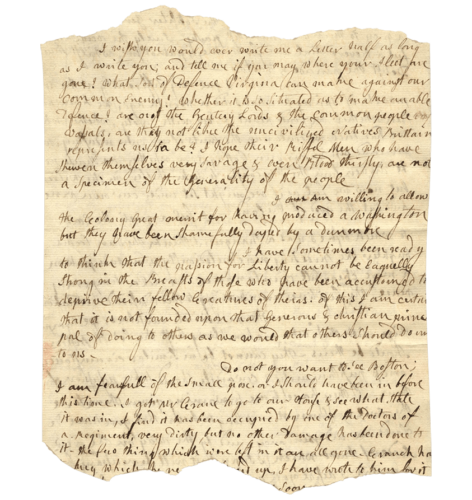 I wish you would ever write me a Letter half as long
as I write you; and tell me if you may where your Fleet are
gone? What sort of Defence Virginia can make against our
common Enemy? Whether it is so situated as to make an able
Defence? are not the Gentery Lords & the common people
vassals, are they not like the uncivilized Natives Brittain
represents us to be? I hope their Riffel Men who have
shewen themselves very savage & even Blood thirsty, are not
a specimen of the Generality of the people
I am willing to allow
the Colony great merrit for having produced a Washington
but they have been shamefully duped by a dunmore
I have sometimes been ready
to think that the passion for Liberty cannot be Eaquelly
strong in the Breasts of those who have been accustomed to
deprive their fellow Creatures of theirs. of this I am certain
that it is not founded upon that Generous & christian princi
pal of doing to others as we would that others should do un
to us -
Do not you want to see Boston;
I am fearfull of the small pox, or I should have been in before
this time. I got Mr Crane to go to our House & see what state
it was in, I find it has been occupied by one of the Doctors of
a Regiment, very Dirty but no other Damage has been done to
it. the few things which were left in it are all gone. Cranch has
key which he up, I have wrote to him for it